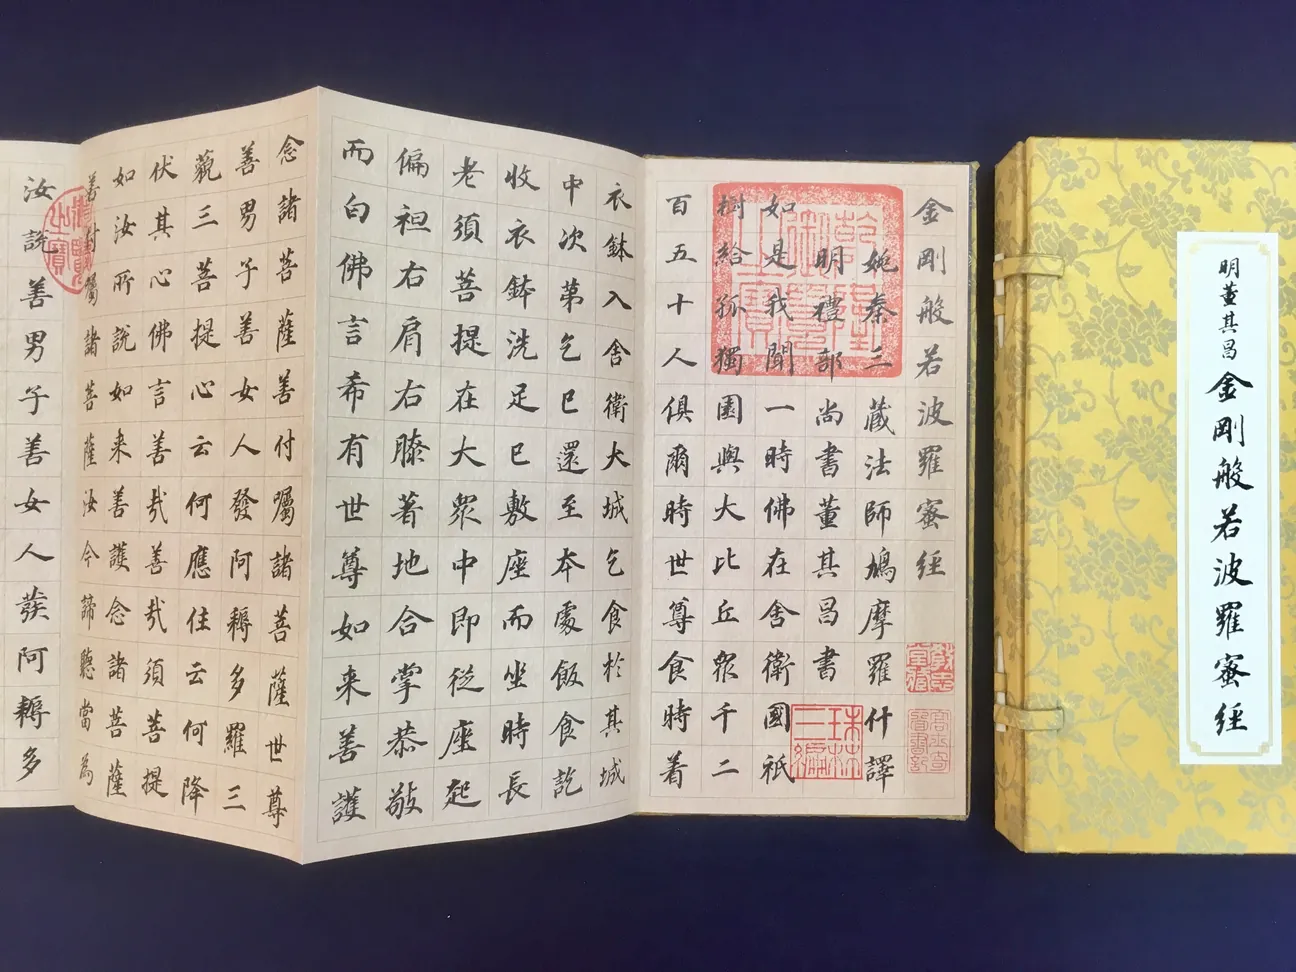 明董其昌金剛般若波羅蜜經
金剛般若波羅蜜經
姚秦三藏法師鳩摩羅什譯
明禮部尚書董其昌書
如是我聞一時佛在舍衛國祇
樹給孤獨園與大比丘眾千二
百五十人俱爾時世尊食時着
衣鉢入舍衛大城乞食於其城
中次第乞已還至本處飯食訖
收衣鉢洗足已敷座而坐時長
老須菩提在大眾中即從座起
偏袒右肩右膝著地合掌恭敬
而白佛言希有世尊如来善護
念諸菩薩善付囑諸菩薩世尊
善男子善女人發阿耨多羅三
藐三菩提心云何應住云何降
伏其心佛言善哉善哉須菩提
如汝所說如来善護念諸菩薩
善付囑諸菩薩汝今諦聽當為
汝說善男子善女人發阿耨多
珠林三編